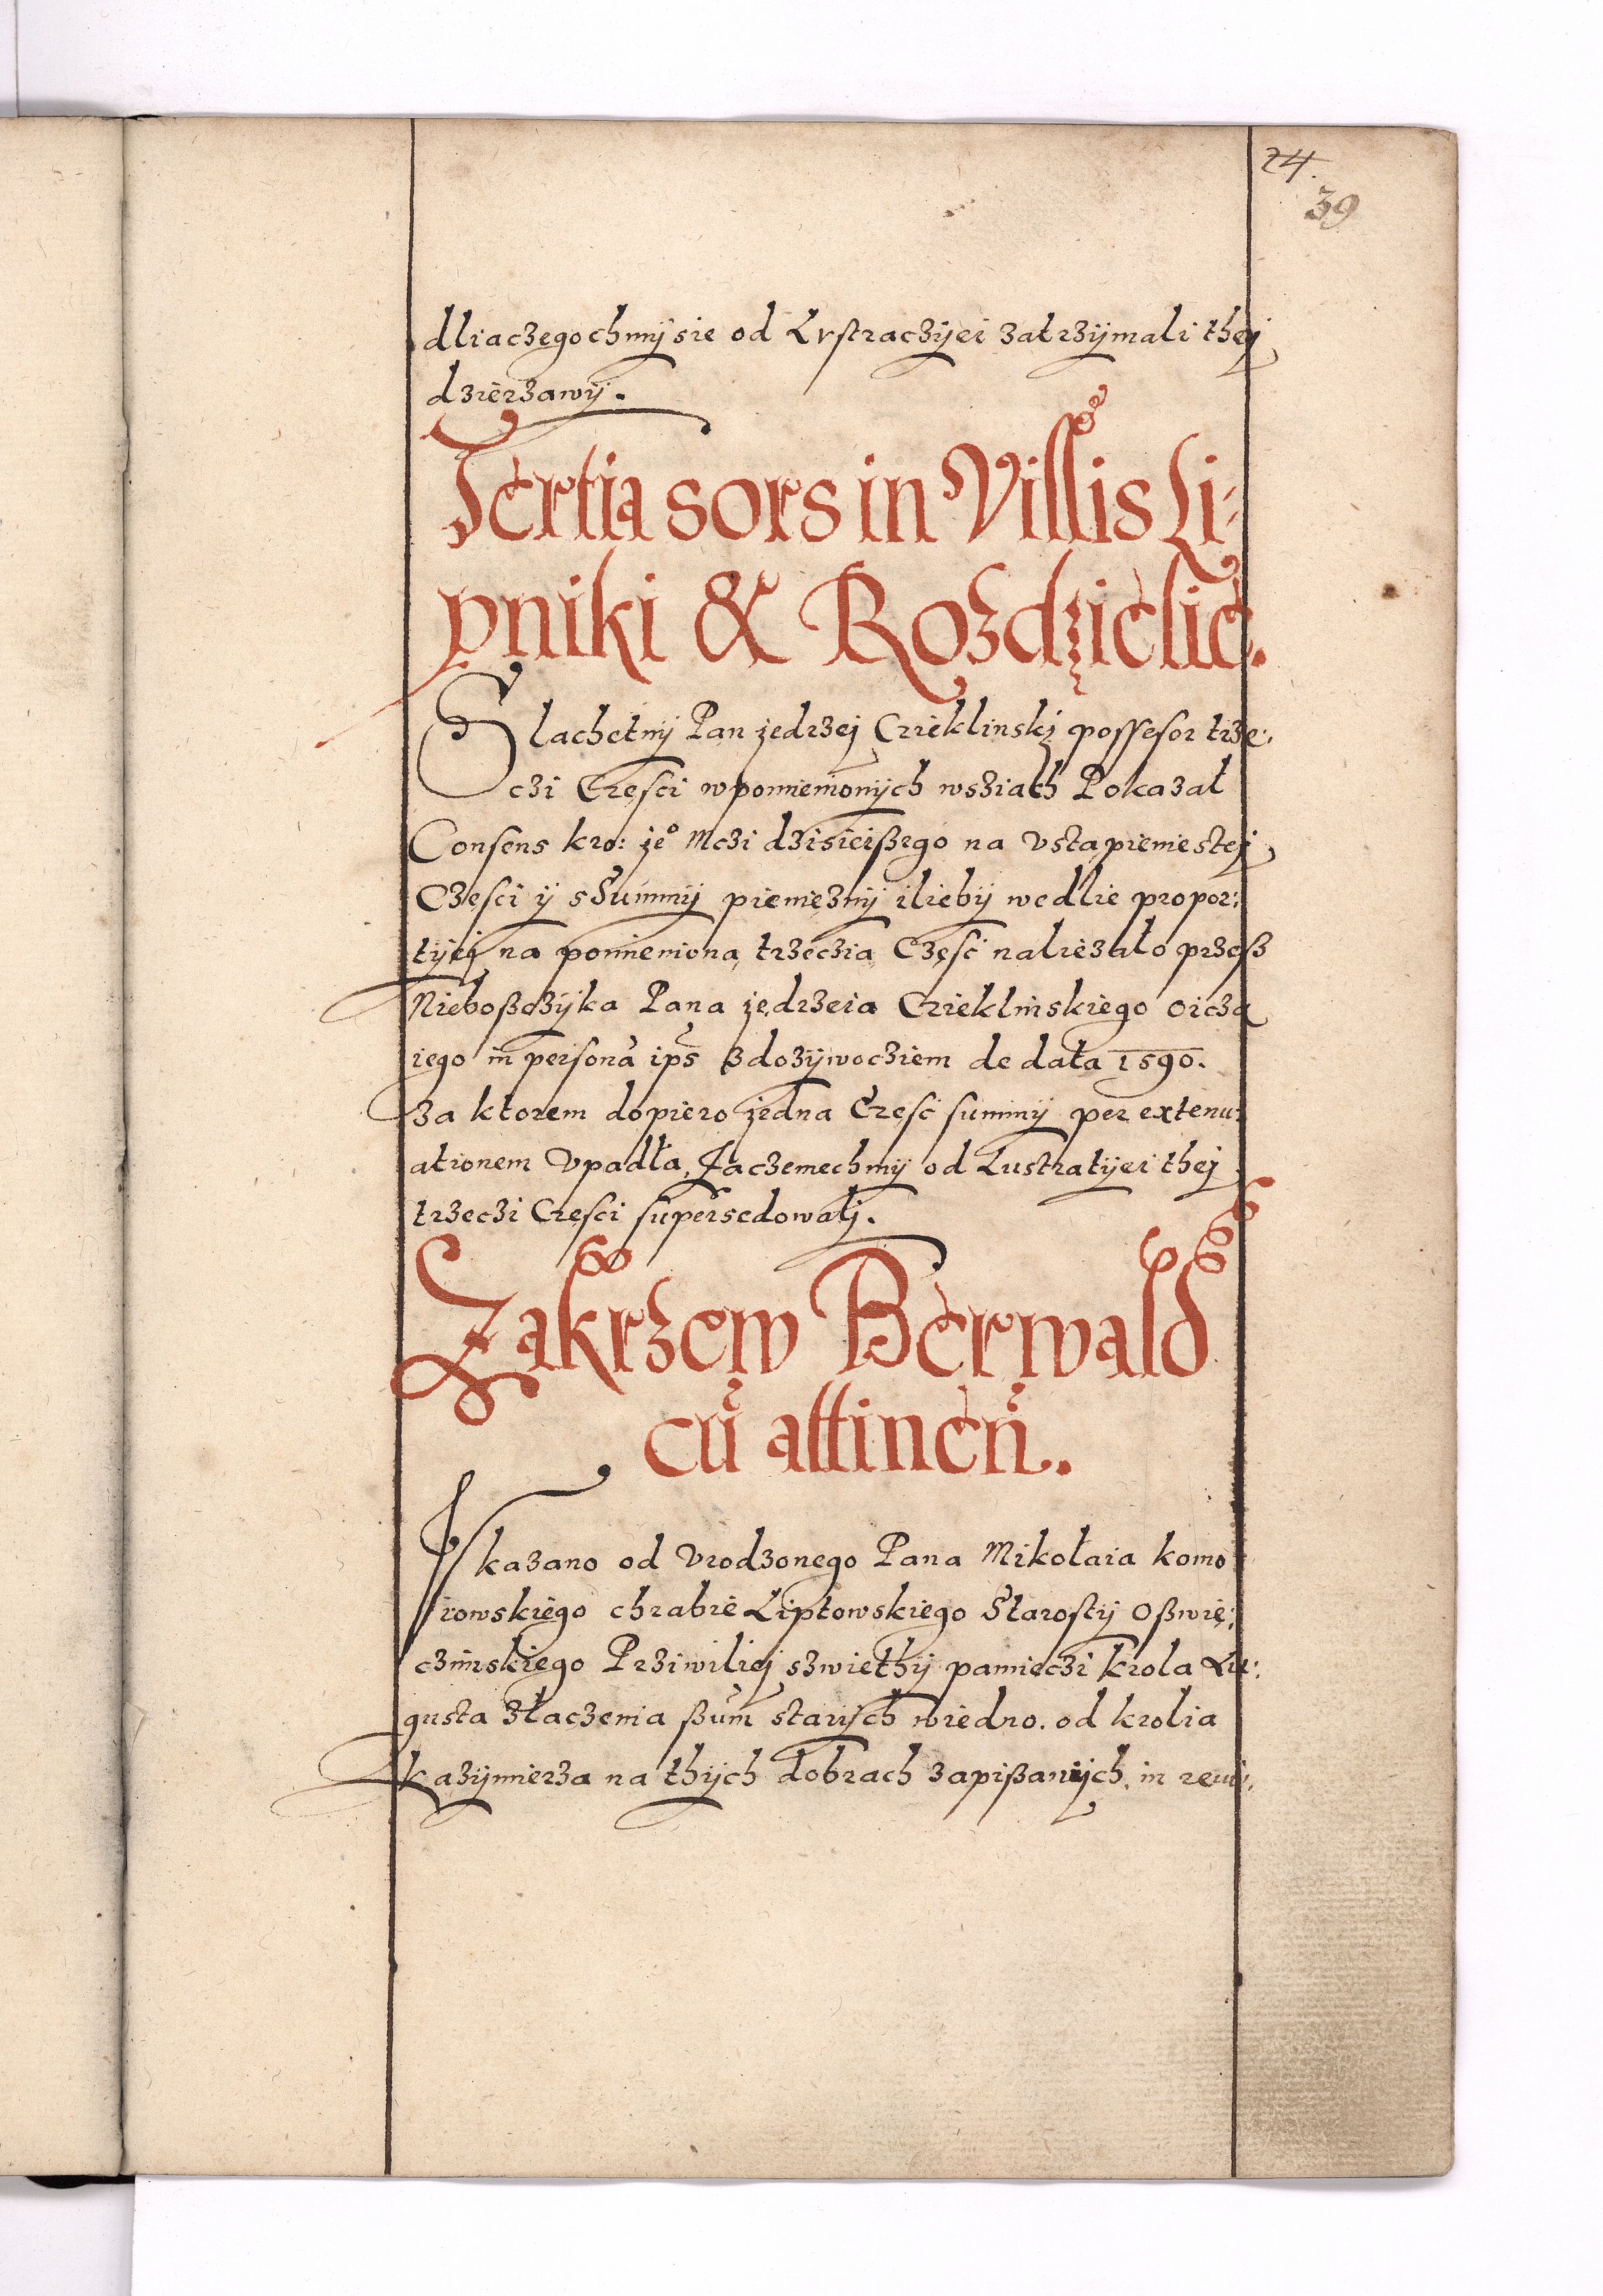 24.
39
dliaczegochmÿsie od Lustraczÿei zatrzÿmali thej
dzierzawÿ.
Tertia sors in Villis Li-
pniki & Rozdzielie.
Slachetnÿ Pan jedrzej Czieklinskj possesor trze:
czi Części wpomieniōnÿch wsziach Pokazał
Consens kro: je° Mczi dzisieißego na Ustąpienie stej
Części ÿ sSummÿ pienieznÿ ilieby wedlie propor:
tÿej na pomieniona trzeczią Część należało przeß
Nieboßczÿka Pana jedrzeia Czieklinskiego oicza
iego in personā ips zdozÿwocziem de data 1590.
za ktorem dopiero jedna Część summÿ per extenu:
ationem Upadła, Zaczemechmÿ od Lustratÿei thej
trzeczi Części supersedowalj.
Zakrzew Berwald
cū attinen̄.
Vkazano od Urodzonego Pana Mikołaia komo
rowskiego chrabie Liptowskiego Starosty Oßwię:
czimskiego Prziwiliej szwiethÿ pamieczi krola Au:
gusta złączenia ßum̄ starÿch wiedno. od krolia
kazÿmierza na thÿch dobrach zapißanÿch, in revi: